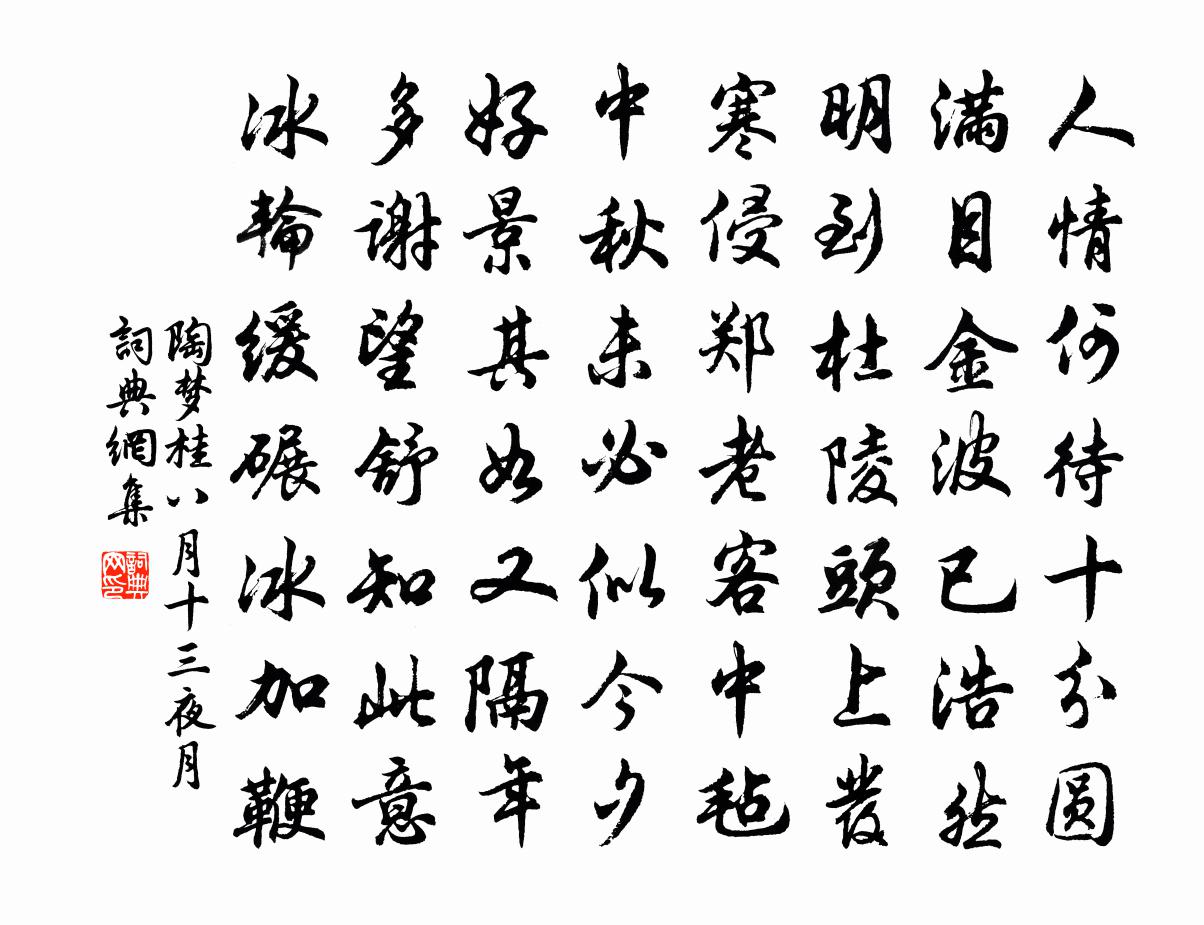 人情何待十分圆
满目金波已浩然
明到杜陵頭上發
寒侵郑老客中毡
中秋未必似今夕
好景其如又隔年
多謝望舒知此意
冰輪缓碾冰加鞭
陶梦桂八月十三夜月
詞典網集
詞典网印